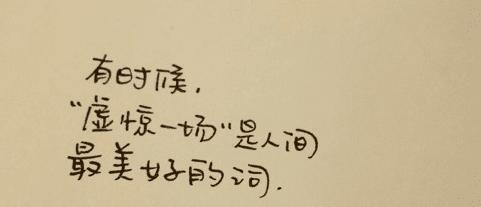 有时候,
“虚惊一场”是人间
最美好的词.